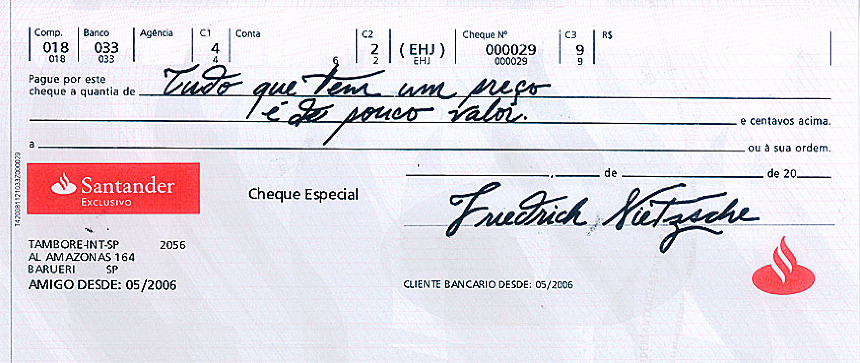 Comp. Banco Agência C1 Conta C2 Cheque Nº C3 R$
018 033 4 2 (EHJ) 000029 9
018 033 4 6 2 EHJ 000029 9
Pague por este
cheque a quantia de Tudo que tem um preço
é de pouco valor. e centavos acima.
a ou à sua ordem.
, de de 20
Santander
EXCLUSIVO
Cheque Especial
Friedrich Nietzsche
TAMBORE-INT-SP 2056
AL AMAZONAS 164
BARUERI SP
AMIGO DESDE: 05/2006
CLIENTE BANCARIO DESDE: 05/2006